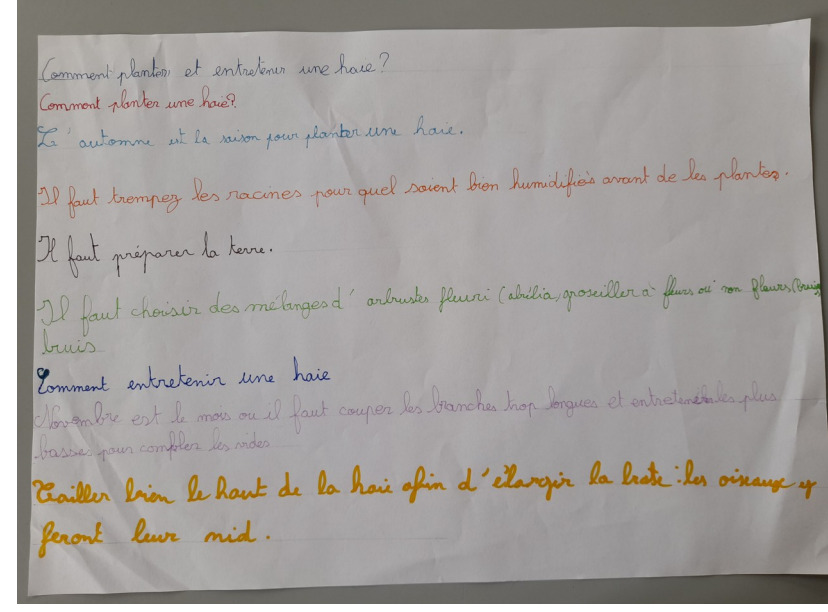 Comment planter et entretenir une haie?
Comment planter une haie?
L'automne est la saison pour planter une haie.
Il faut trempez les racines pour quel soient bien humidifiées avant de les plantez.
Il faut préparer la terre.
Il faut choisir des mélanges d'arbustes fleuri (abélia, groseiller à fleurs ou non fleurs
bruis
Comment entretenir une haie
Novembre est le mois ou il faut couper les branches trop longues et les plus
basses pour combler les vides
Tailler bien le haut de la haie afin d'élargir la : les oiseaux y
feront leur nid.